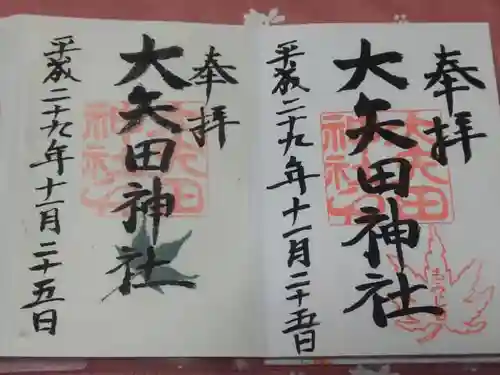 奉拝
大矢田神社
平成二十九年十一月二十五日
奉拝
大矢田神社
平成二十九年十一月二十五日